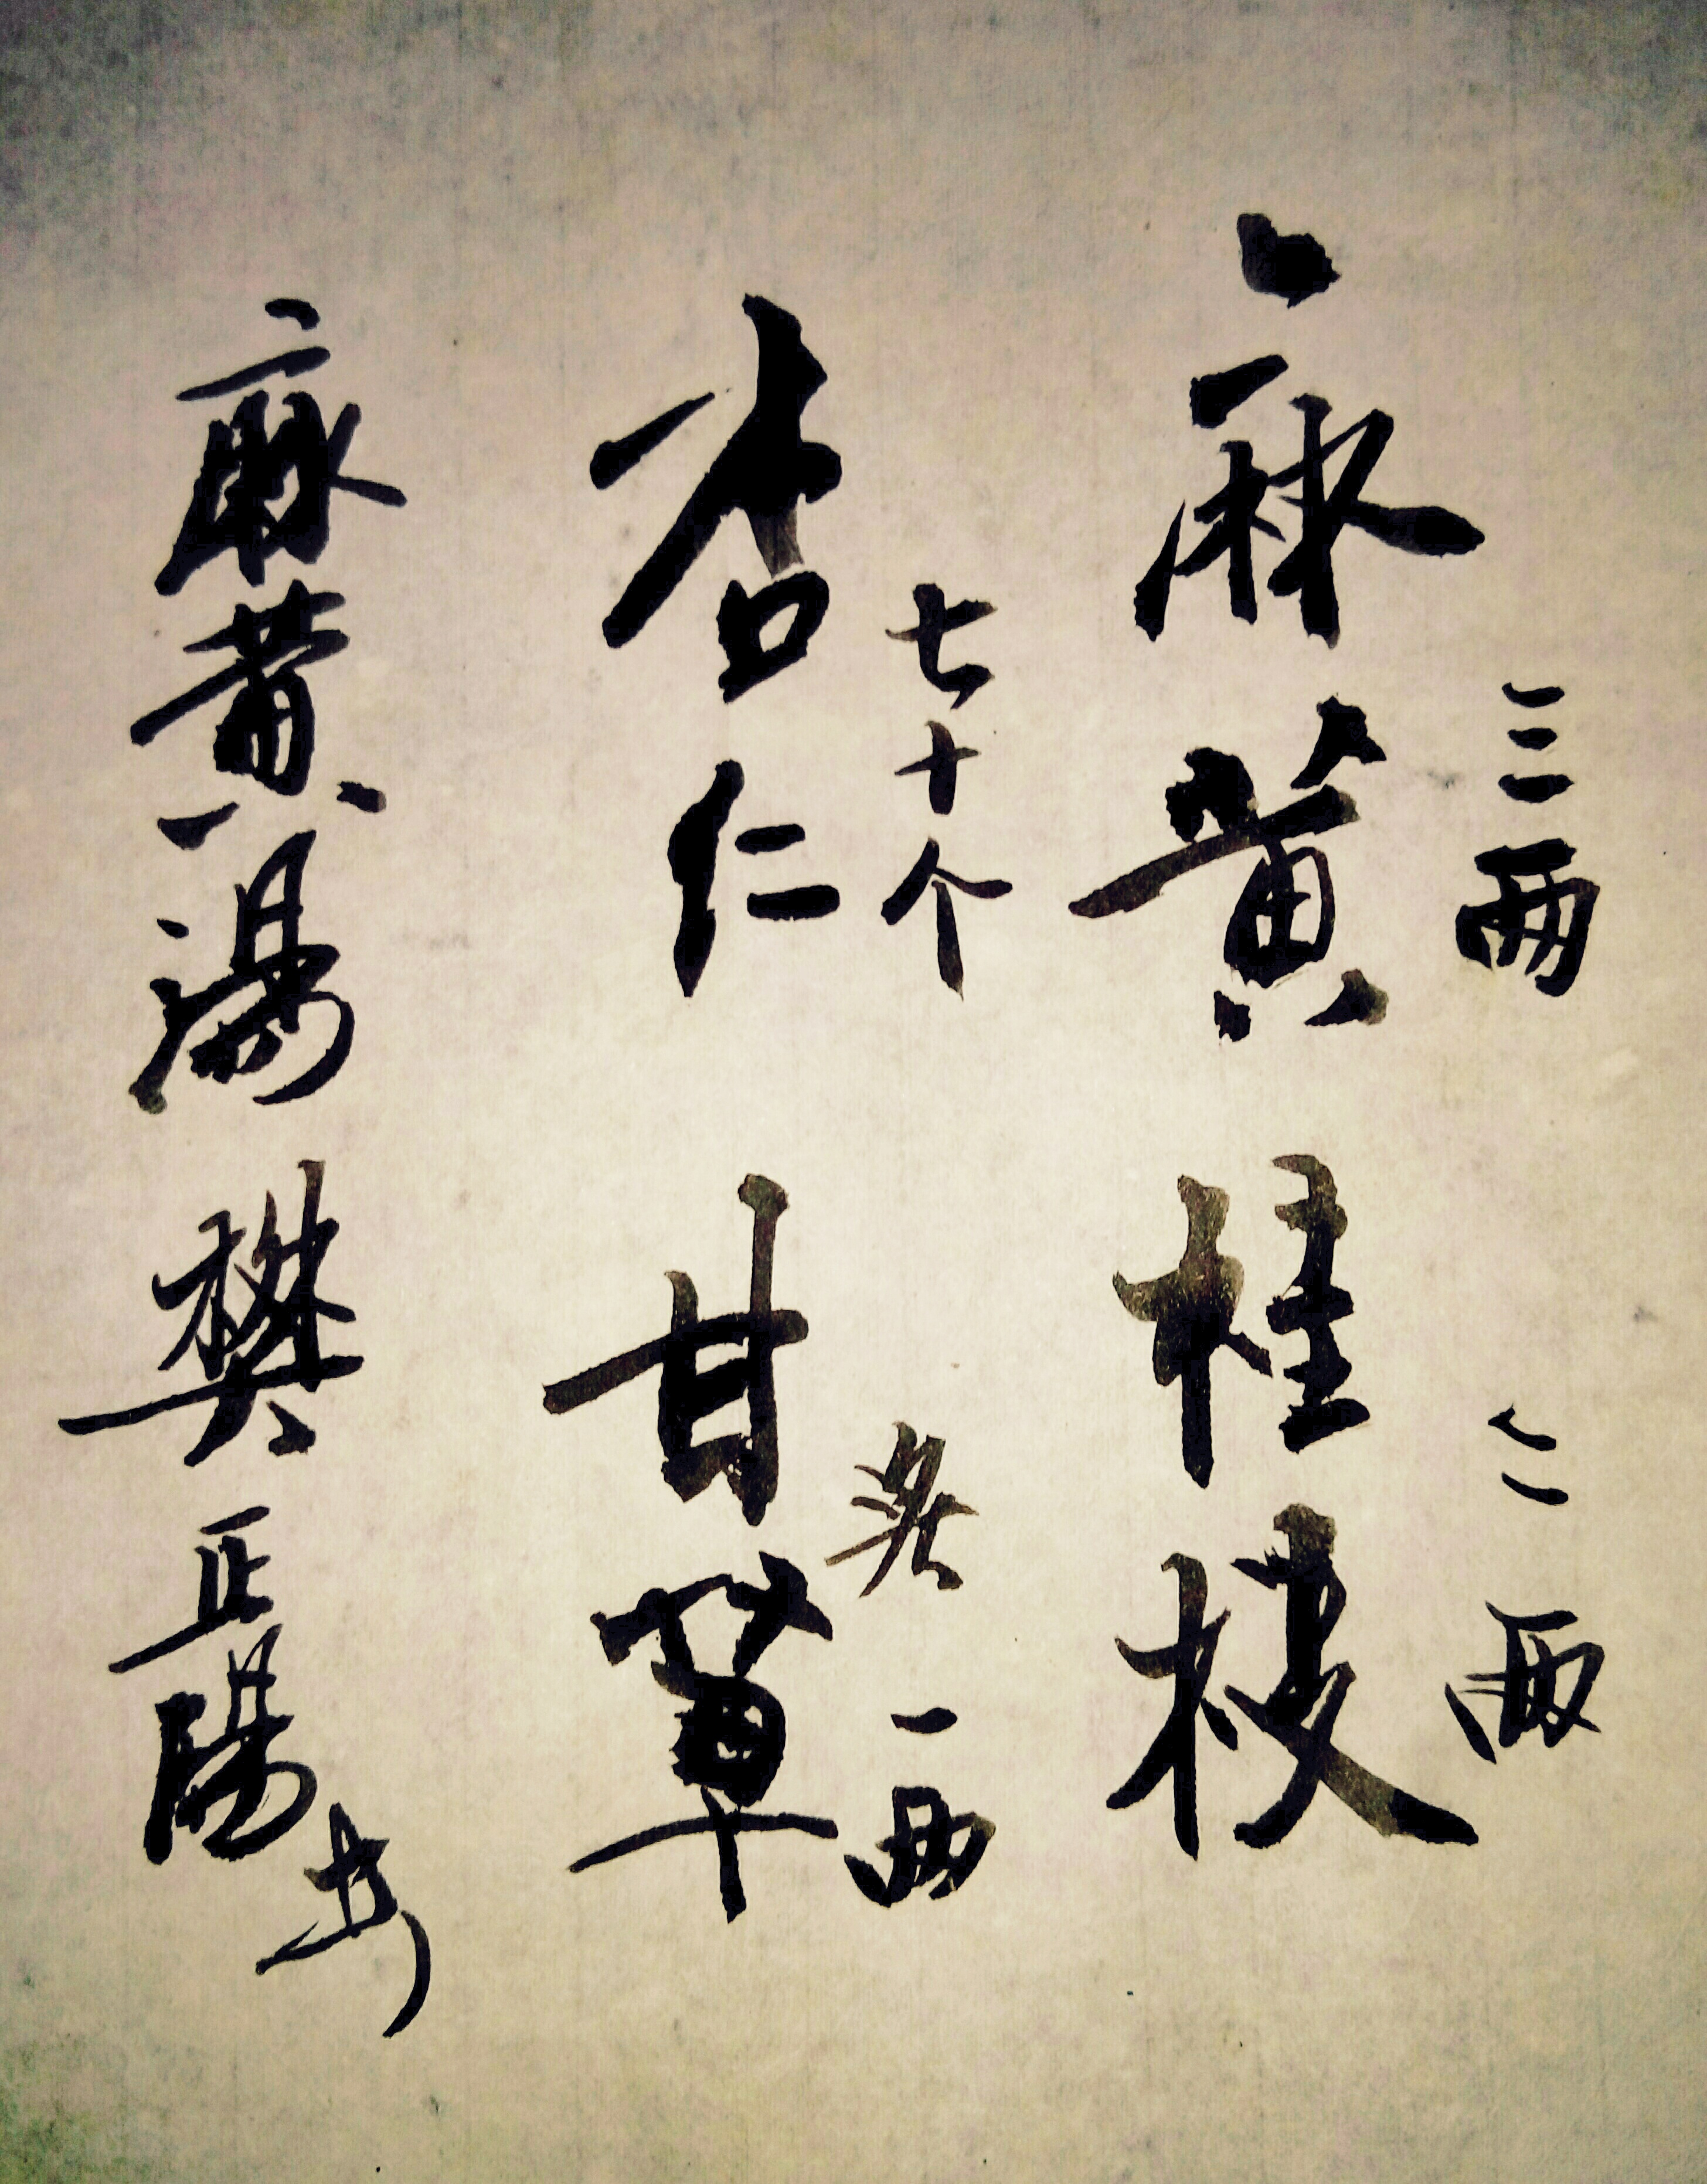 三兩 二兩
麻黄 桂枝
七十个 炙 一两
杏仁 甘草
麻黄湯 樊正陽书